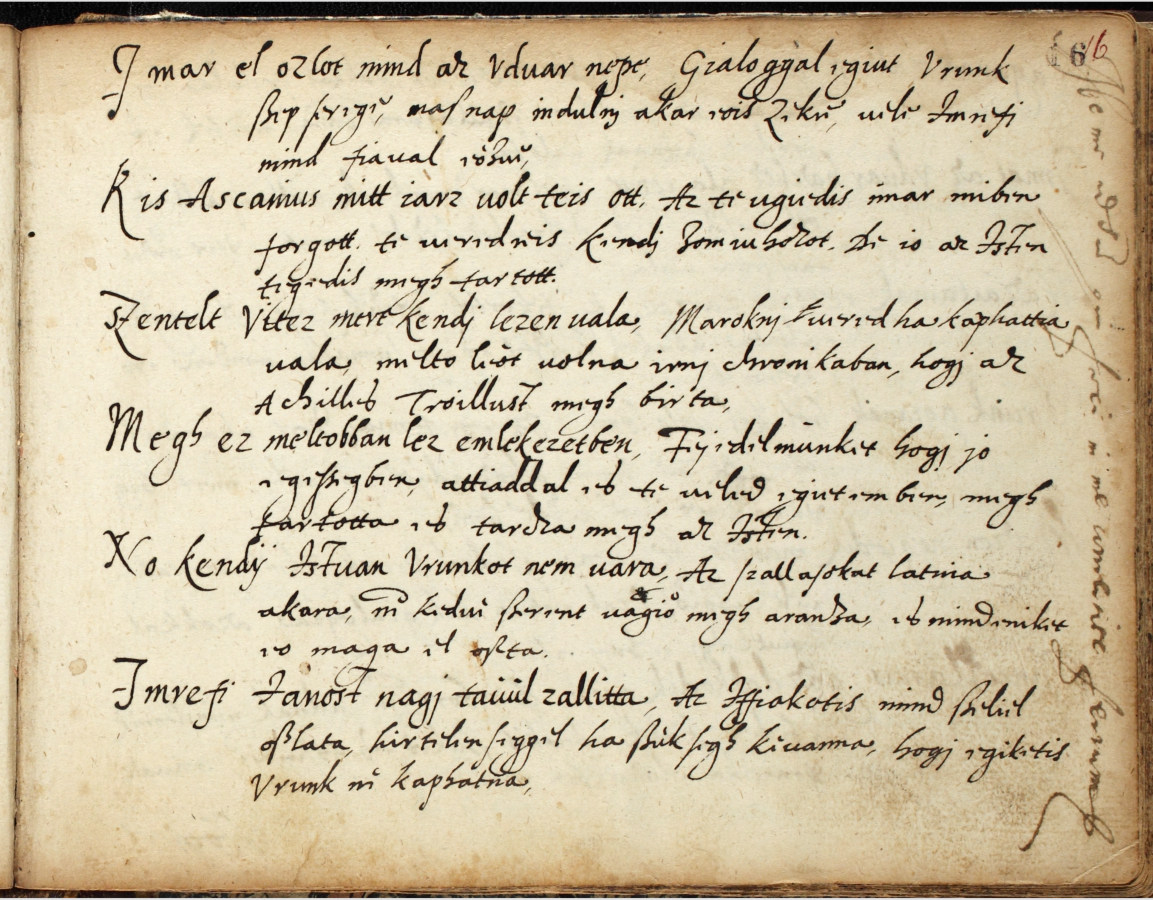 Imar el ozlot mind az Vduar nepe, Gialoggal egiut Vrunk
ßep serege, masnap indulnj akar eois Zeke, vele Imrefi
mind fiaval eözue,
Kis Ascanius mitt iarz uolt teis ott, Az te ugiedis imar miben
forgott. te ueredreis Kendj Zomiuhozot. De io az Isten
tegedis megh tartott.
Szentelt Vitez mert kendj lezen uala, Maroknj ueredha kaphattia
uala, melto leöt uolna irnj chronikaban, hogj az
Achilles Troillust megh birta,
Megh ez meltobban lez emlekezetben, Fejedelmünket hogj jo
egessegben, attiaddal es te ueled egietemben, megh
tartotta es tardza megh az Isten.
No kendij Istuan Vrunkot nem uara, Az szallasokat latnia
akara, kedue ßerent megh arandza, es mindeniket
eo maga el oßta.
Imrefi Janost nagj tauul zallitta, Az Iffiakotis mind ßeliel
oßlata, hirtelenseggel ha ßüksegh keuanna, hogj egiketis
Vrunk ne kaphatna,
6
16